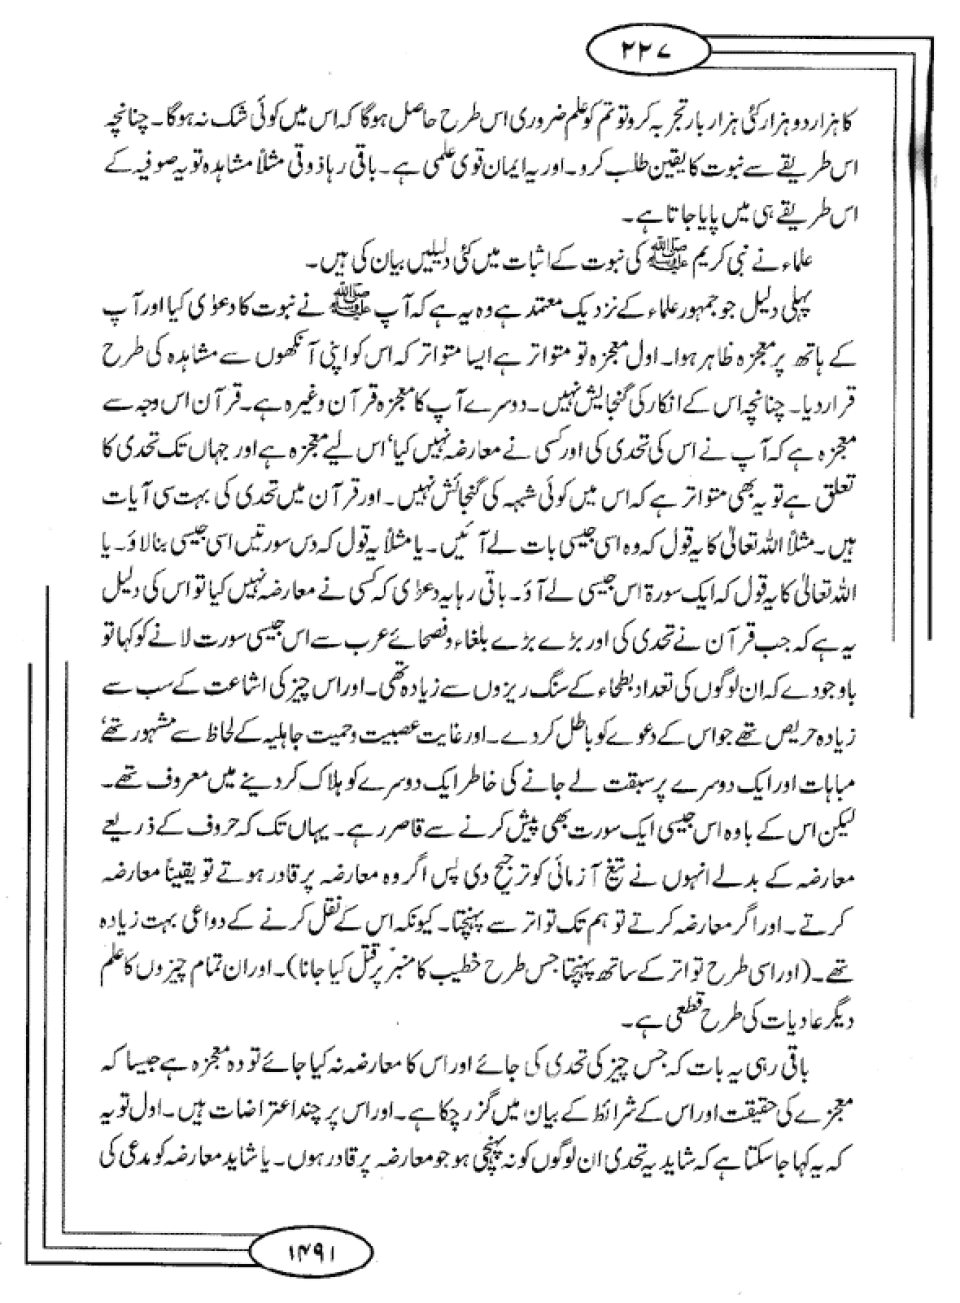 ۲۲۷
کا ہزار دو ہزار کئی ہزار بار تجربہ کرو تو تم کو علم ضروری اس طرح حاصل ہوگا کہ اس میں کوئی شک نہ ہوگا۔ چنانچہ
اس طریقے سے نبوت کا یقین طلب کرو۔ اور یہ ایمان قوی علمی ہے۔ باقی رہا ذوقی مثلاً مشاہدہ تو یہ صوفیہ کے
اس طریقے ہی میں پایا جاتا ہے۔
علماء نے نبی کریم ﷺ کی نبوت کے اثبات میں کئی دلیلیں بیان کی ہیں۔
پہلی دلیل جو جمہور علماء کے نزدیک معتمد ہے وہ یہ ہے کہ آپ ﷺ نے نبوت کا دعوٰی کیا اور آپ
کے ہاتھ پر معجزہ ظاہر ہوا۔ اول معجزہ تو متواتر ہے ایسا متواتر کہ اس کو اپنی آنکھوں سے مشاہدہ کی طرح
قرار دیا۔ چنانچہ اس کے انکار کی گنجایش نہیں۔ دوسرے آپ کا معجزہ قرآن وغیرہ ہے۔ قرآن اس وجہ سے
معجزہ ہے کہ آپ نے اس کی تحدی کی اور کسی نے معارضہ نہیں کیا‘ اس لیے معجزہ ہے اور جہاں تک تحدی کا
تعلق ہے تو یہ بھی متواتر ہے کہ اس میں کوئی شبہہ کی گنجائش نہیں۔ اور قرآن میں تحدی کی بہت سی آیات
ہیں۔ مثلاً اللہ تعالیٰ کا یہ قول کہ وہ اسی جیسی بات لے آئیں۔ یا مثلاً یہ قول کہ دس سورتیں اسی جیسی بنا لاؤ۔ یا
اللہ تعالیٰ کا یہ قول کہ ایک سورۃ اس جیسی لے آؤ۔ باقی رہا یہ دعوٰی کہ کسی نے معارضہ نہیں کیا تو اس کی دلیل
یہ ہے کہ جب قرآن نے تحدی کی اور بڑے بڑے بلغاء و فصحائے عرب سے اس جیسی سورت لانے کو کہا تو
باوجودے کہ ان لوگوں کی تعداد بطحاء کے سنگ ریزوں سے زیادہ تھی۔ اور اس چیز کی اشاعت کے سب سے
زیادہ حریص تھے جو اس کے دعوے کو باطل کر دے۔ اور غایت عصبیت و حمیت جاہلیہ کے لحاظ سے مشہور تھے‘
مباہات اور ایک دوسرے پر سبقت لے جانے کی خاطر ایک دوسرے کو ہلاک کر دینے میں معروف تھے۔
لیکن اس کے باوہ اس جیسی ایک سورت بھی پیش کرنے سے قاصر رہے۔ یہاں تک کہ حروف کے ذریعے
معارضہ کے بدلے انہوں نے تیغ آزمائی کو ترجیح دی پس اگر وہ معارضہ پر قادر ہوتے تو یقیناً معارضہ
کرتے۔ اور اگر معارضہ کرتے تو ہم تک تواتر سے پہنچتا۔ کیونکہ اس کے نقل کرنے کے دواعی بہت زیادہ
تھے۔ (اور اسی طرح تواتر کے ساتھ پہنچتا جس طرح خطیب کا منبر پر قتل کیا جانا)۔ اور ان تمام چیزوں کا علم
دیگر عادیات کی طرح قطعی ہے۔
باقی رہی یہ بات کہ جس چیز کی تحدی کی جائے اور اس کا معارضہ نہ کیا جائے تو وہ معجزہ ہے جیسا کہ
معجزے کی حقیقت اور اس کے شرائط کے بیان میں گزر چکا ہے۔ اور اس پر چند اعتراضات ہیں۔ اول تو یہ
کہ یہ کہا جا سکتا ہے کہ شاید یہ تحدی ان لوگوں کو نہ پہنچی ہو جو معارضہ پر قادر ہوں۔ یا شاید معارضہ کو مدعی کی
۱۴۹۱